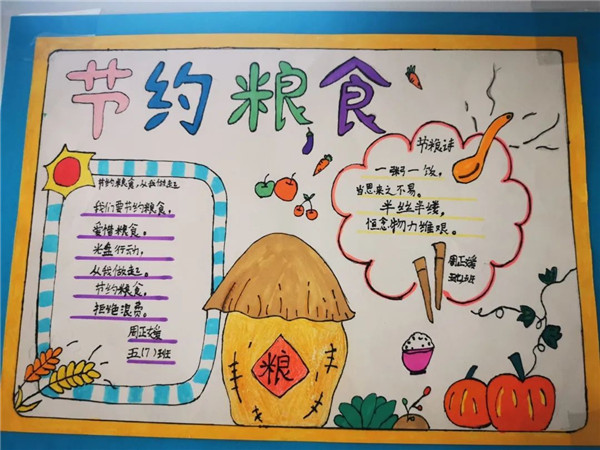 节约粮食
节约粮食,从我做起
我们要节约粮食,
爱惜粮食。
光盘行动,
从我做起。
节约粮食,
拒绝浪费。
周正媛
五(7)班
节粮诗
一粥一饭,
当思来之不易。
半丝半缕,
恒念物力维艰。
周正媛
五(7)班
粮